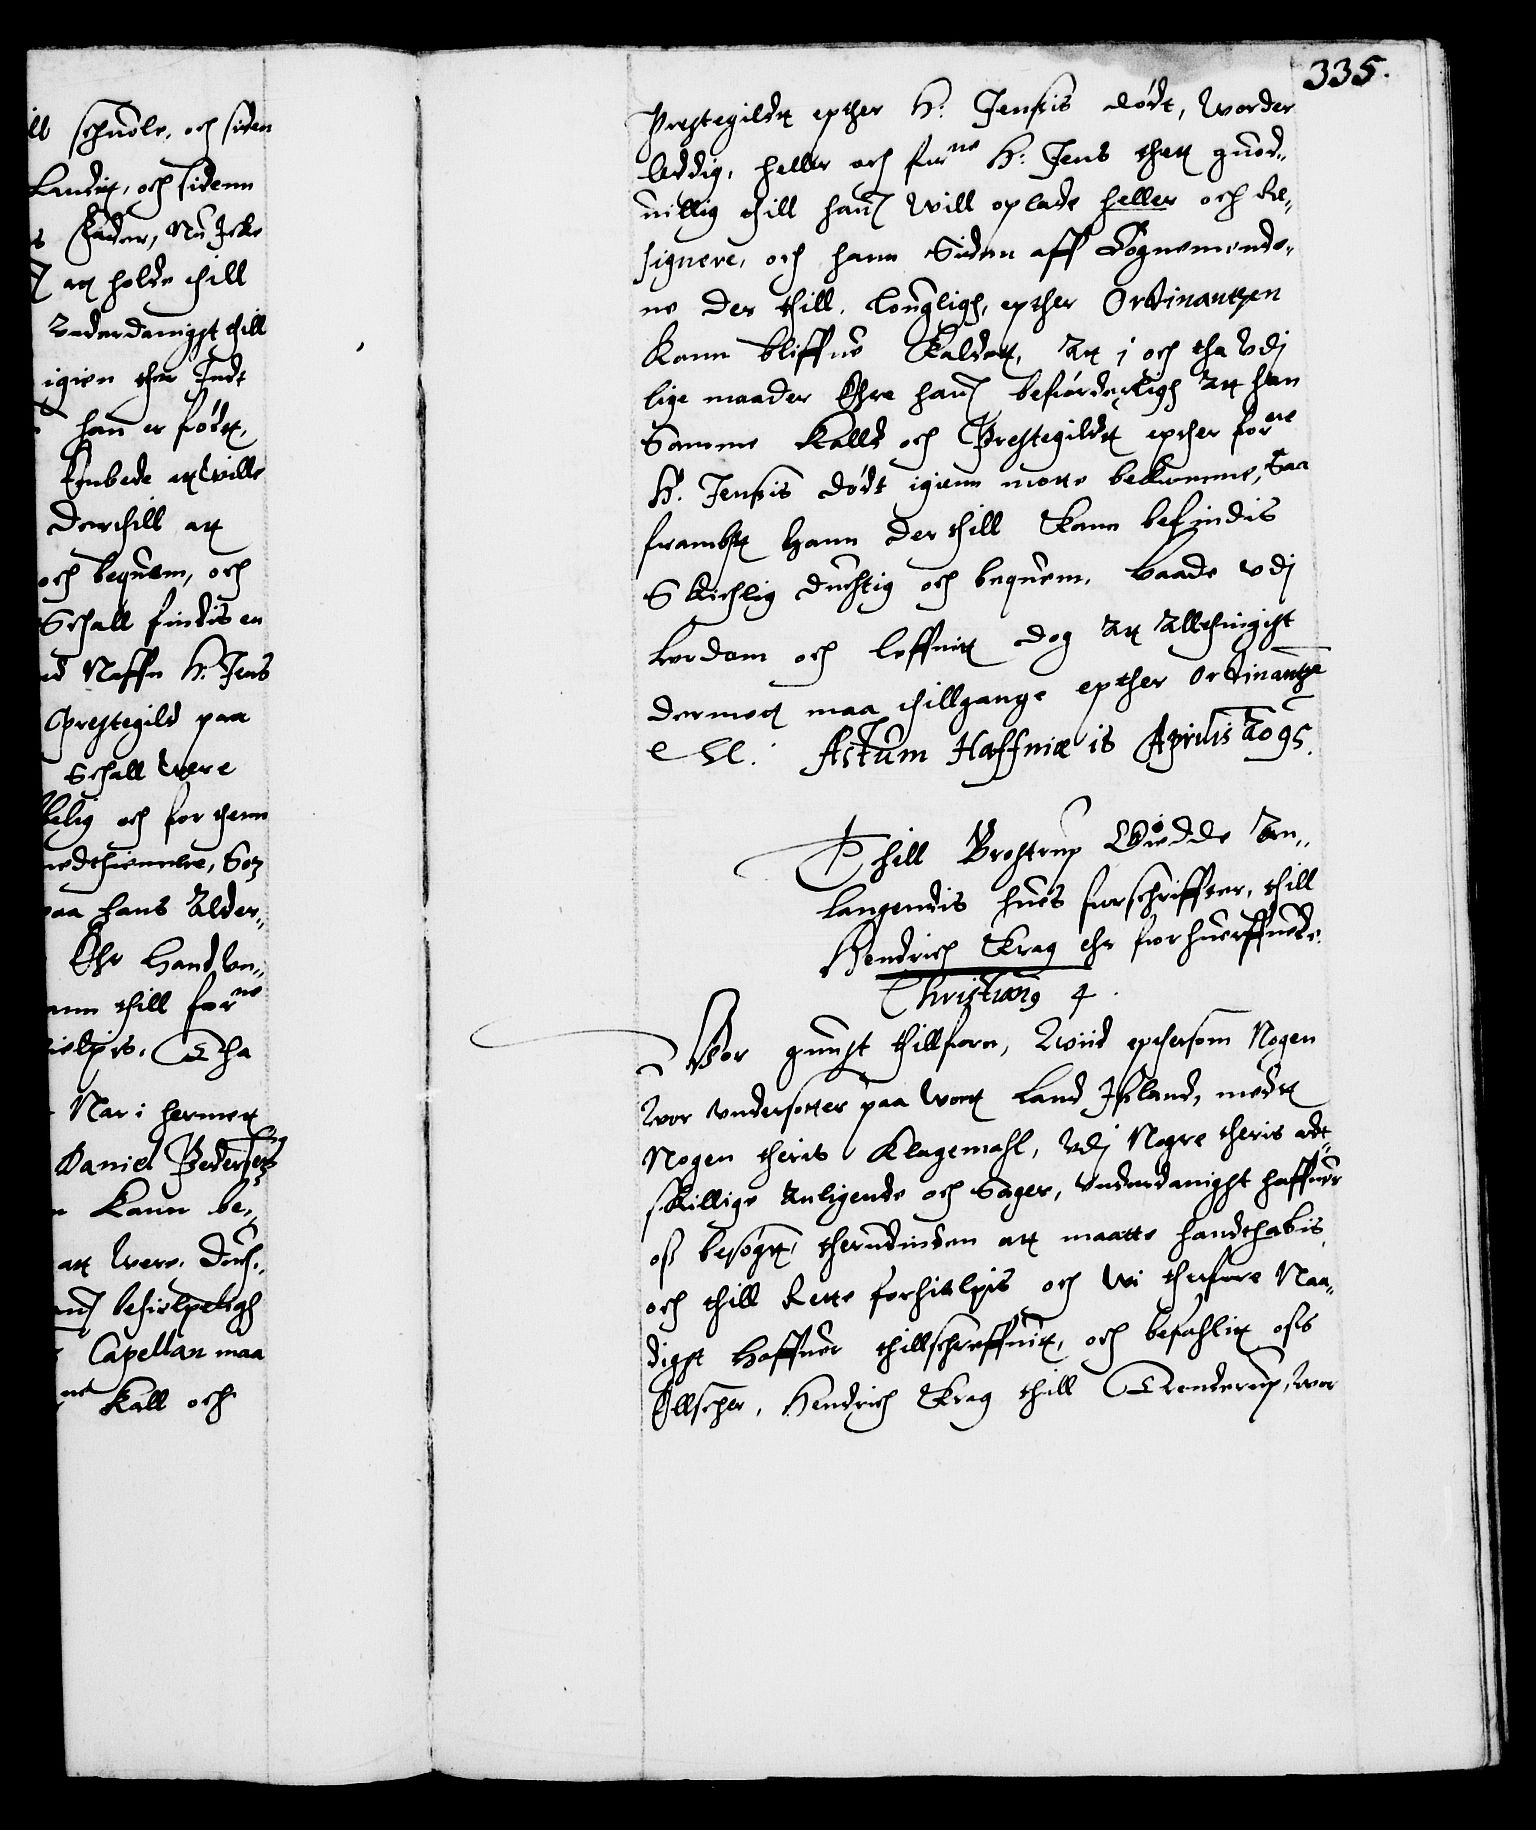 335.
ill schuole, och siden
Landitt, och sidenn
s Fader, Nu Icke
att holde thill
Vnderdanigst thill
igien ther Indt
hanᷠ er födt,
Embede att wille
Derthill att
och bequem, och
Schall findis en
ed Naffn H. Jens
Prestegild paa
Schall were
kelig och for thenn
medthiennere, Som
paa hans Alder„
Ehr handt en„
ann thill forne
hielpis. Tha
Nar i hermett
Daniel Pedersen
Kann be„
att were. Duch„
behielpeligh
Capellan maa
ne Kall och
Prestegildt epther H: Jensis Död, worder
leddig, heller och forne H: Jens thett guod„
uillig thill hanß will oplade heller och Re„
signere, och hann Siden aff Sognemende„
ne der thill, lougligh, epther Ordinantzen
Kann bliffue Kaldett, Att i och tha vdj
lige maader Ehre hanß beforderligh Att han
Samme Kalld och Prestegildt epther forne
H. Jensis Dödt igienn motte bekomme, Saa
frambt hann der thill Kann befindis
Skichlig duchtig och bequem, baade vdj
Lerdom och leffnit dog Att Altthingist
dermett maa thillgange epther Ordinantze
Actum Haffniæ is Aprilis Ao 95.
Thill Brostrup Giedde An„
langendis hues forschriffter, thill
Hendrich Krag ehr forhuerffuede.
Christians 4.
Vor gunst thillforn, Wiid epthersom Nogen
wor vndersotter paa wort Land Jsland, medt
Nogen theris Klagemahl, vdj Nogre theris adt„
skillige Anligende och Sager, vnderdanigst haffuer
oß besögt, therudinden att maatte handthabis
och thill Rette forhielpis och Wi therfore Naa„
digst haffuer thillschreffuit, och befahlit oss
Elscher, Hendrich Krag thill Trenderup, wor